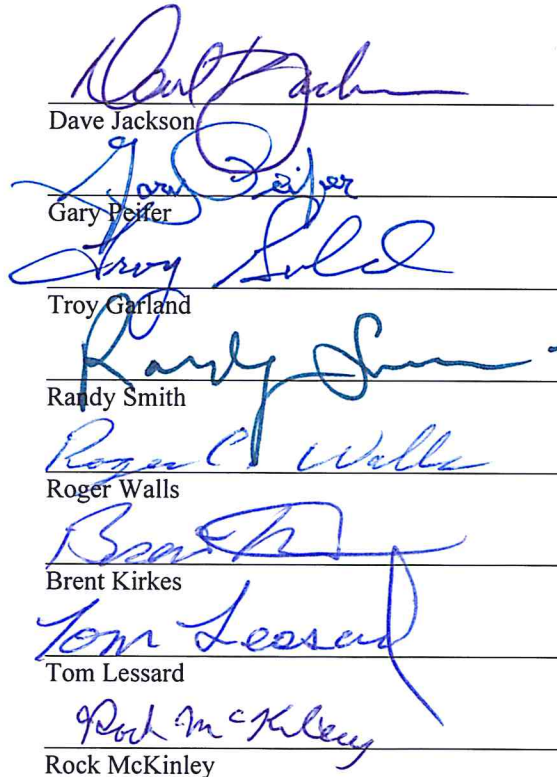 Dave Jackson
Dave Jackson
Gary Peifer
Gary Peifer
Troy Garland
Troy Garland
Randy Smith
Randy Smith
Roger C. Walls
Roger Walls
Brent
Brent Kirkes
Tom Lessard
Tom Lessard
Rock McKinley
Rock McKinley